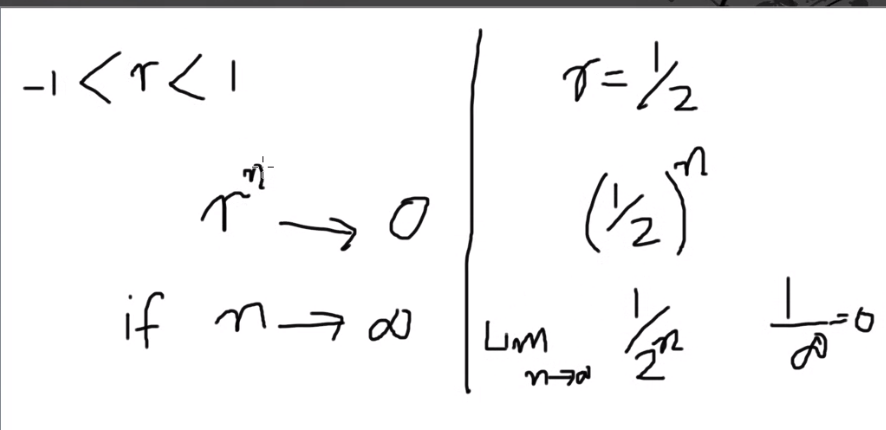 -1 < r < 1
r^n → 0
if n → ∞
r = 1/2
(1/2)^n
Lim n→∞ 1/2^n 1/∞ = 0